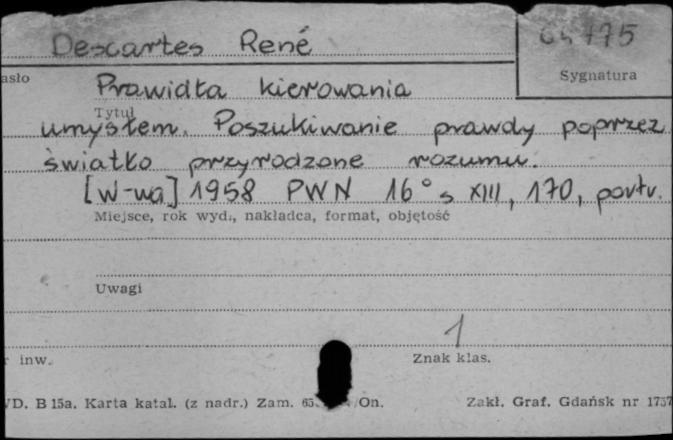 Descartes René
175
asło
Sygnatura
Prawidła kierowania
Tytuł
umysłem. Poszukiwanie prawdy poprzez
światło przyrodzone rozumu.
[W-wa] 1958 PWN 16° s XIII, 170, portr.
Miejsce, rok wyd., nakładca, format, objętość
Uwagi
1
r inw.
Znak klas.
D. B 15a. Karta katal. (z nadr.) Zam. On. Zakł. Graf. Gdańsk nr 1757